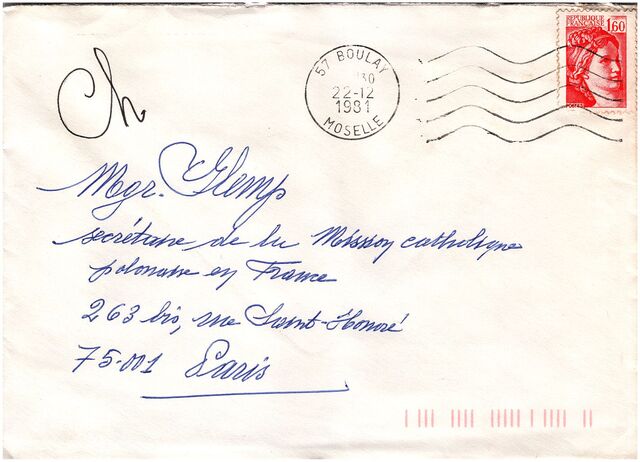 Ch
57 BOULAY
30
22-12
1981
MOSELLE
REPUBLIQUE
FRANÇAISE
1,60
POSTES
Mgr. Glemp
secrétaire de la Mission catholique
polonaise en France
263 bis, rue Saint-Honoré
75.001 Paris